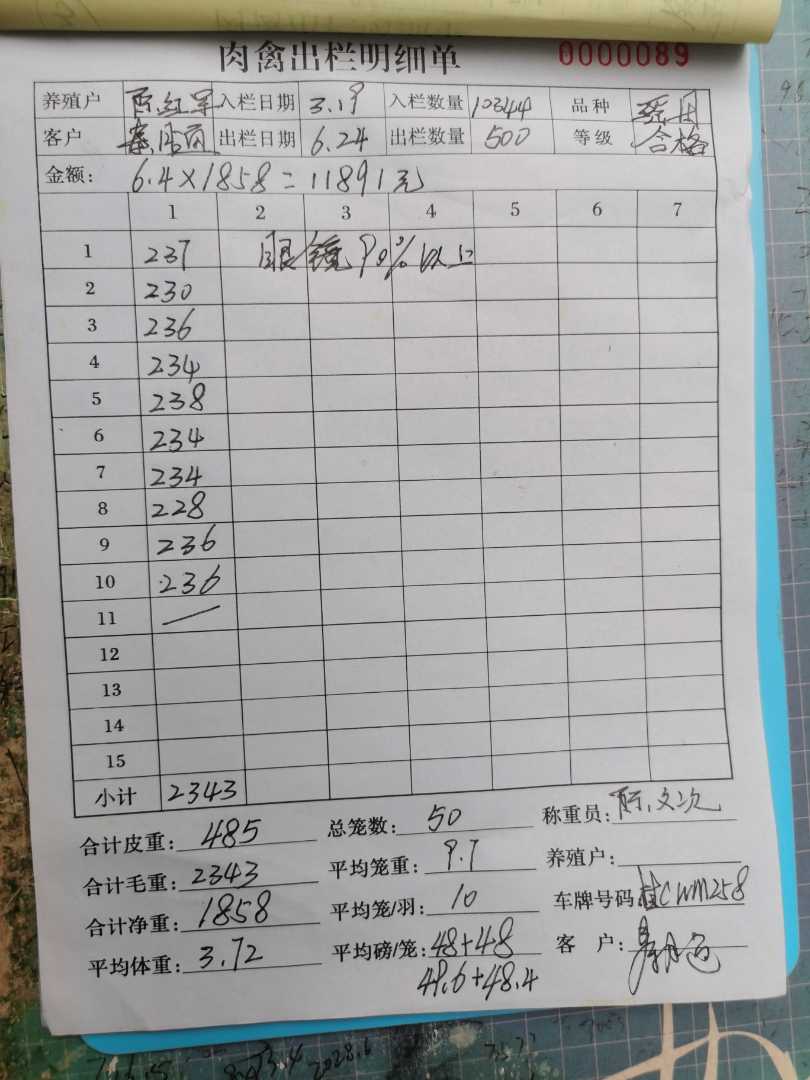 肉禽出栏明细单 0000089
养殖户 陈红军 入栏日期 3.19 入栏数量 10344 品种
客户 出栏日期 6.24 出栏数量 500 等级 合格
金额: 6.4×1858=11891元
1 2 3 4 5 6 7
1 237 眼镜90%以上
2 230
3 236
4 234
5 238
6 234
7 234
8 228
9 236
10 236
11
12
13
14
15
小计 2343
合计皮重: 485 总笼数: 50 称重员: 陈文次
合计毛重: 2343 平均笼重: 9.7 养殖户:
合计净重: 1858 平均笼/羽: 10 车牌号码 桂CWM258
平均体重: 3.72 平均磅/笼: 48+48 客 户:
48.4